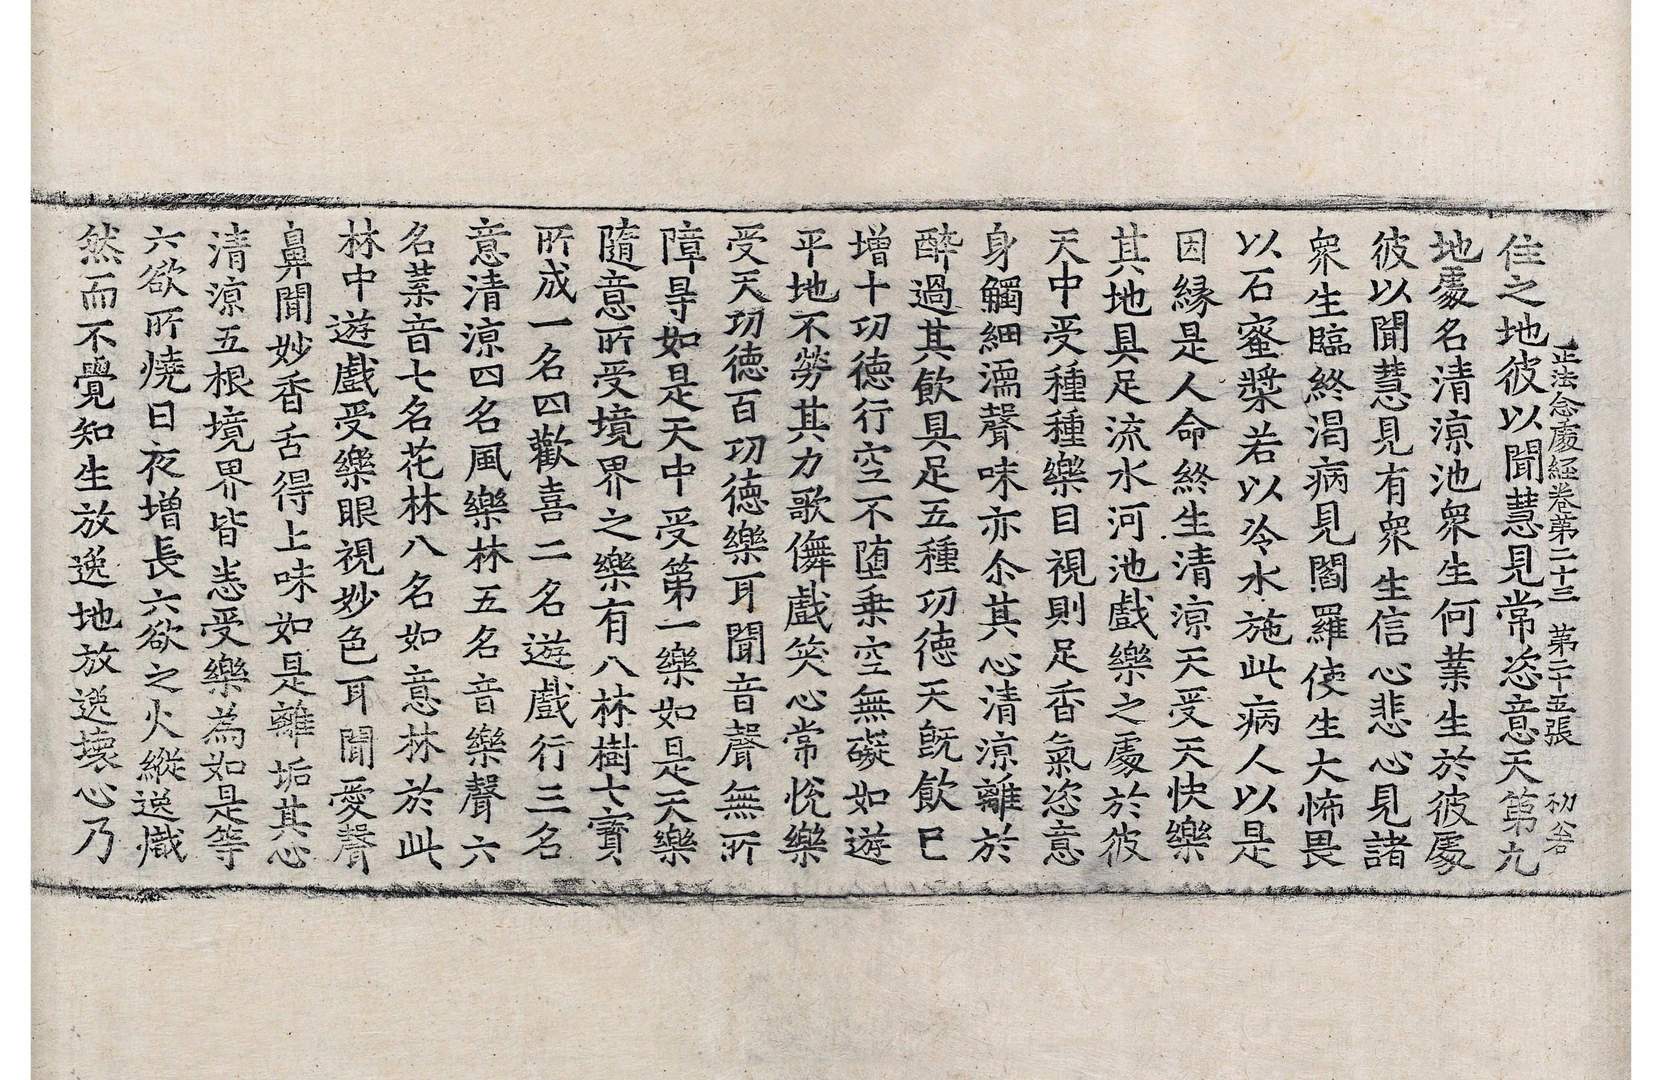 正法念處經卷第二十三　第二十五張　初谷
住之地彼以聞慧見常恣意天第九
地處名清涼池衆生何業生於彼處
彼以聞慧見有衆生信心悲心見諸
衆生臨終渴病見閻羅使生大怖畏
以石蜜漿若以冷水施此病人以是
因緣是人命終生清涼天受天快樂
其地具足流水河池戲樂之處於彼
天中受種種樂目視則足香氣恣意
身觸細濡聲味亦尒其心清涼離於
醉過其飲具足五種功德天旣飲已
增十功德行空不墮乗空無礙如遊
平地不勞其力歌儛戲笑心常悅樂
受天功德百功德樂耳聞音聲無所
障㝵如是天中受第一樂如是天樂
隨意所受境界之樂有八林樹七寶
所成一名四歡喜二名遊戲行三名
意清涼四名風樂林五名音樂聲六
名葉音七名花林八名如意林於此
林中遊戲受樂眼視妙色耳聞愛聲
鼻聞妙香舌得上味如是離垢其心
清涼五根境界皆恣受樂為如是等
六欲所燒日夜增長六欲之火縱逸熾
然而不覺知生放逸地放逸壞心乃